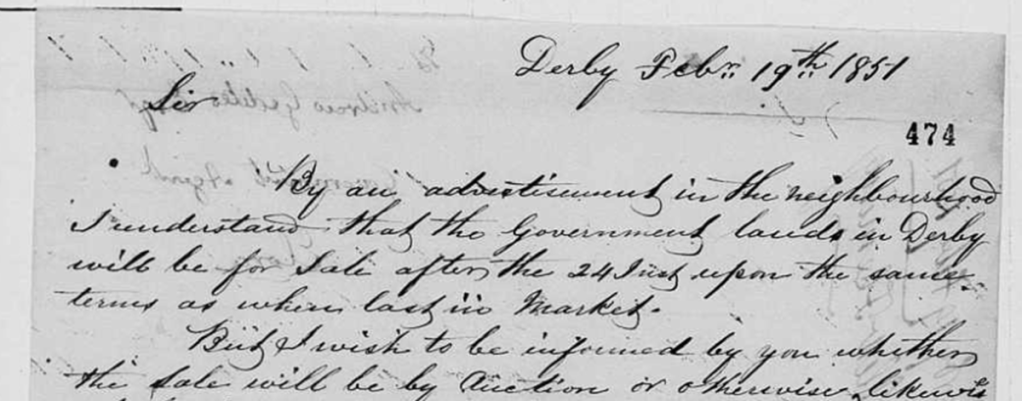 Derby Febr. 19th 1851
Sir
474
By an advertisement in the neighbourhood
I understand that the Government lands in Derby
will be for Sale after the 24 Inst upon the same
terms as when last in Market.
But I wish to be informed by you whether
the Sale will be by Auction or otherwise, likewise